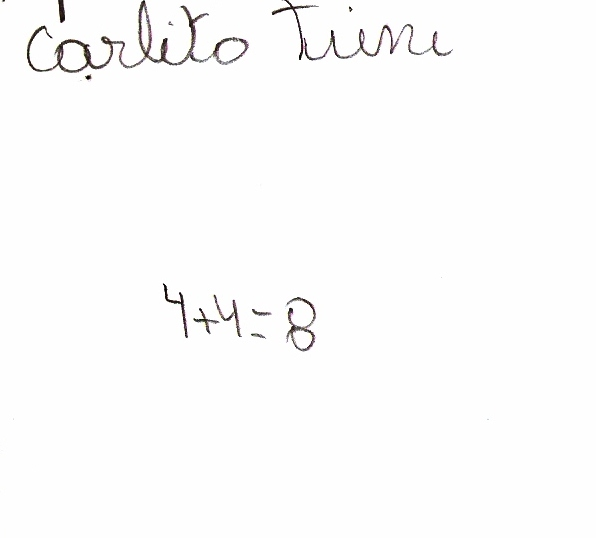 carlito tiene
4+4=8